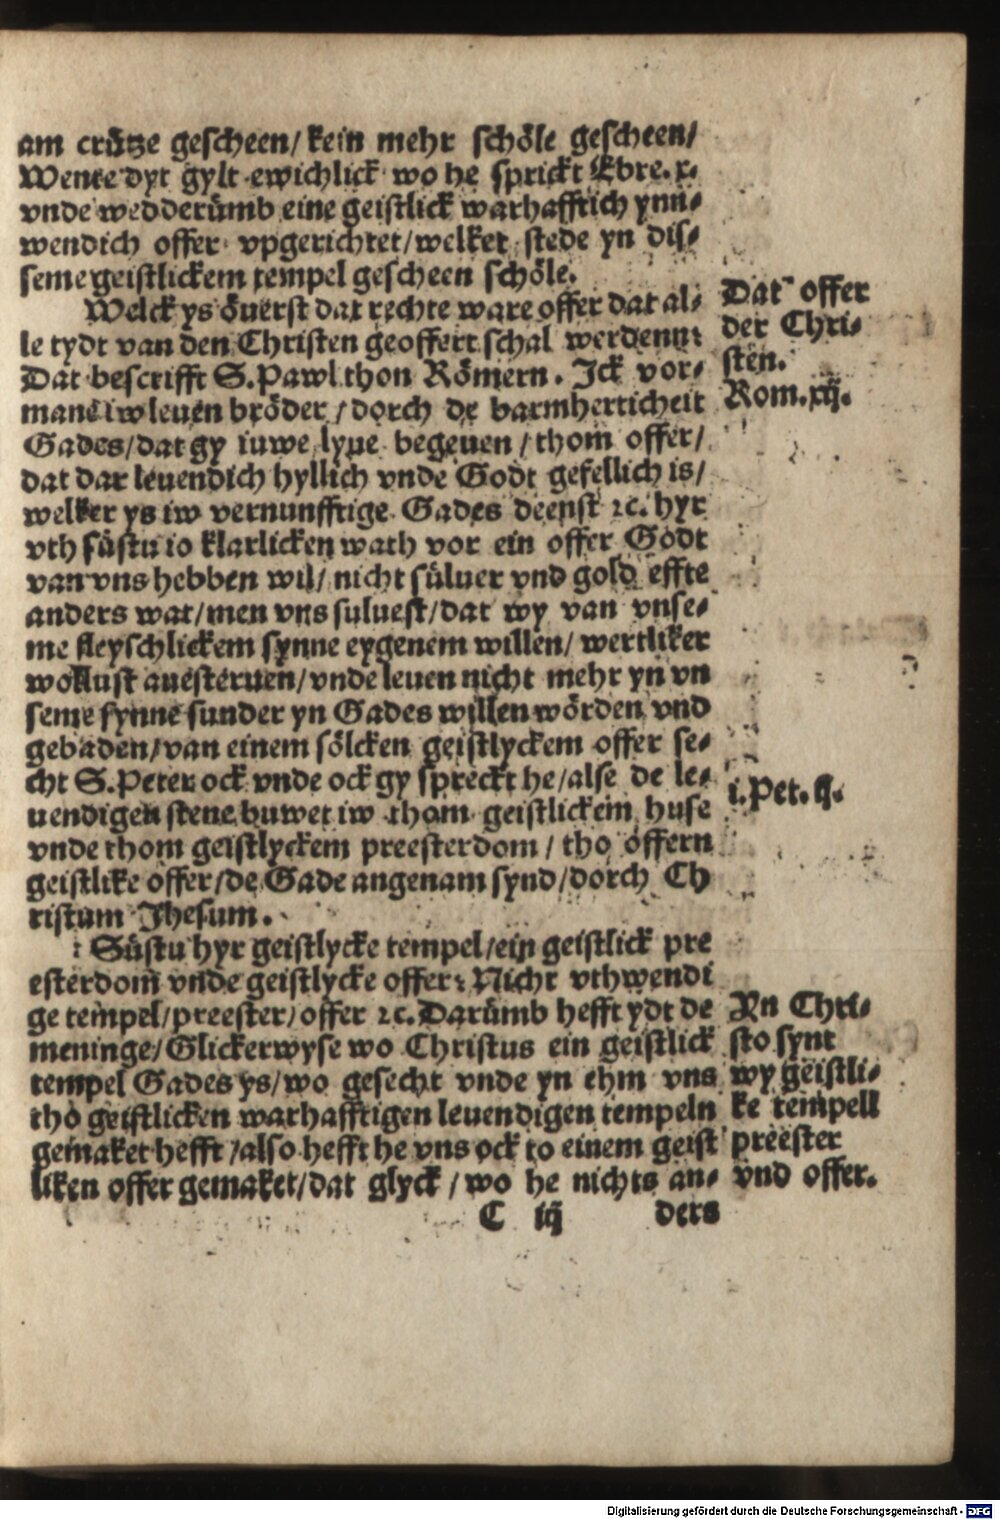 am crütze gescheen/ kein mehr schöle gescheen/
Wente dyt gylt ewichlick wo he sprickt Ebre. x.
vnde wedderümb eine geistlick warhafftich ynn⸗
wendich offer vpgerichtet/ welket stede yn dis⸗
seme geistlickem tempel gescheen schöle.
Welck ys överst dat rechte ware offer dat al⸗
le tydt van den Christen geoffert schal werdenn:
Dat bescrifft S. Pawl thon Römern. Ick vor⸗
mane iw leuen bröder/ dorch de barmherticheit
Gades/ dat gy iuwe lyue begeuen/ thom offer/
dat dar leuendich hyllich vnde Godt gefellich is/
welker ys iw vernunfftige Gades deenst ⁊c. hyr
vth süstu io klarlicken wath vor ein offer Godt
van vns hebben wil/ nicht süluer vnd gold effte
anders wat/ men vns suluest/ dat wy van vnse⸗
me fleyschlickem synne eygenem willen/ wertliker
wollust auesteruen/ vnde leuen nicht mehr yn vn
seme synne sunder yn Gades willen wörden vnd
gebaden/ van einem sölcken geistlyckem offer se⸗
cht S. Peter ock vnde ock gy spreckt he/ alse de le⸗
uendigen stene buwet iw thom geistlickem huse
vnde thom geistlyckem preesterdom/ tho offern
geistlike offer/ de Gade angenam synd/ dorch Ch
ristum Jhesum.
Süstu hyr geistlycke tempel/ ein geistlick pre
esterdom vnde geistlycke offer: Nicht vthwendi
ge tempel/ preester/ offer ⁊c. Darümb hefft ydt de
meninge/ Glickerwyse wo Christus ein geistlick
tempel Gades ys/ wo gesecht vnde yn ehm vns
tho geistlicken warhafftigen leuendigen tempeln
gemaket hefft/ also hefft he vns ock to einem geist
liken offer gemaket/ dat glyck/ wo he nichts an⸗
C iij ders
Dat offer
der Chri⸗
sten.
Rom. xij.
i. Pet. ij.
Yn Chri⸗
sto synt
wy geistli⸗
ke tempell
preester
vnd offer.
Digitalisierung gefördert durch die Deutsche Forschungsgemeinschaft - DFG